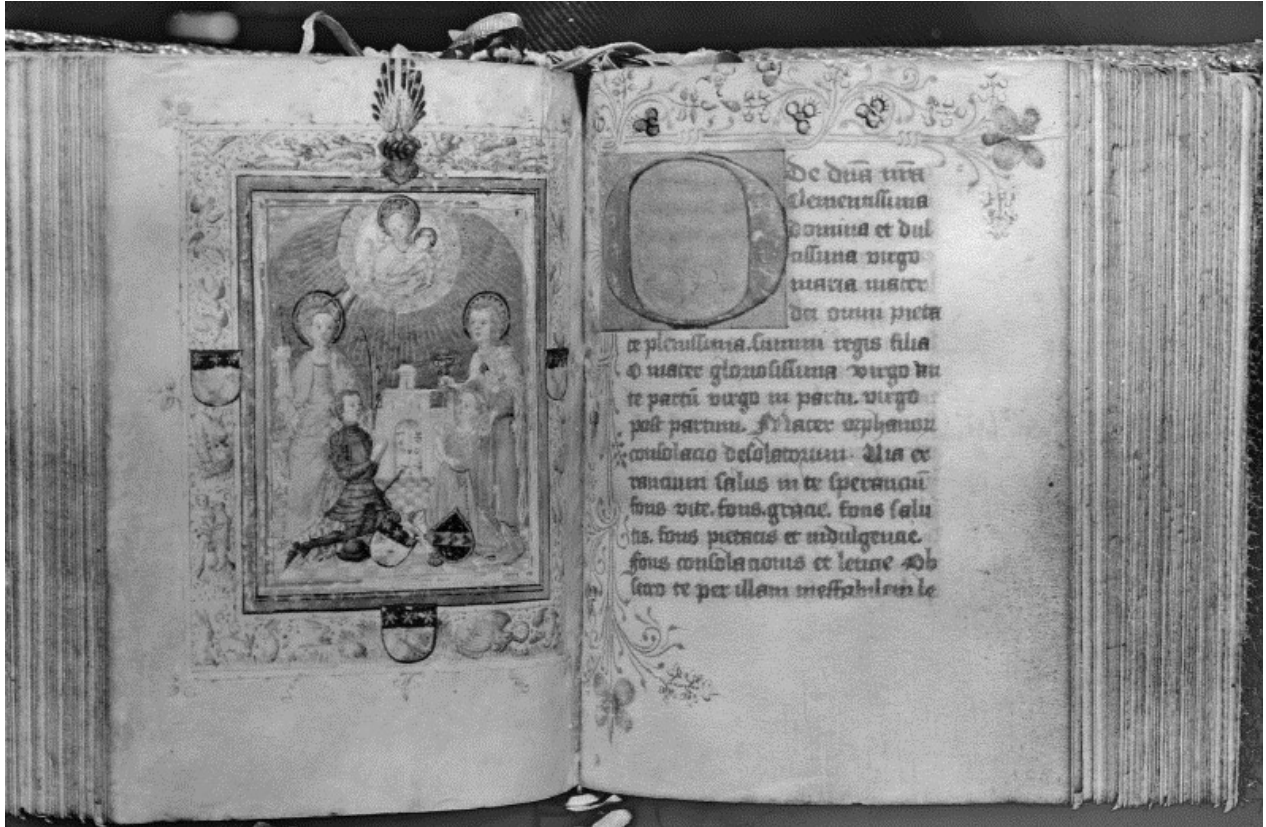 O De dñã nrã
clementissima
domina et dul
cissima virgo
maria mater
dei omni pieta
te plenissima. summi regis filia
O mater gloriosissima virgo an
te partū virgo in partu. virgo
post partum. Mater orphanorū
consolacio desolatorum. Via er
rancium salus in te speranciū
fons vite. fons gracie. fons salu
tis. fons pietatis et indulgencie.
fons consolationis et leticie Ob
secro te per illam ineffabilem le